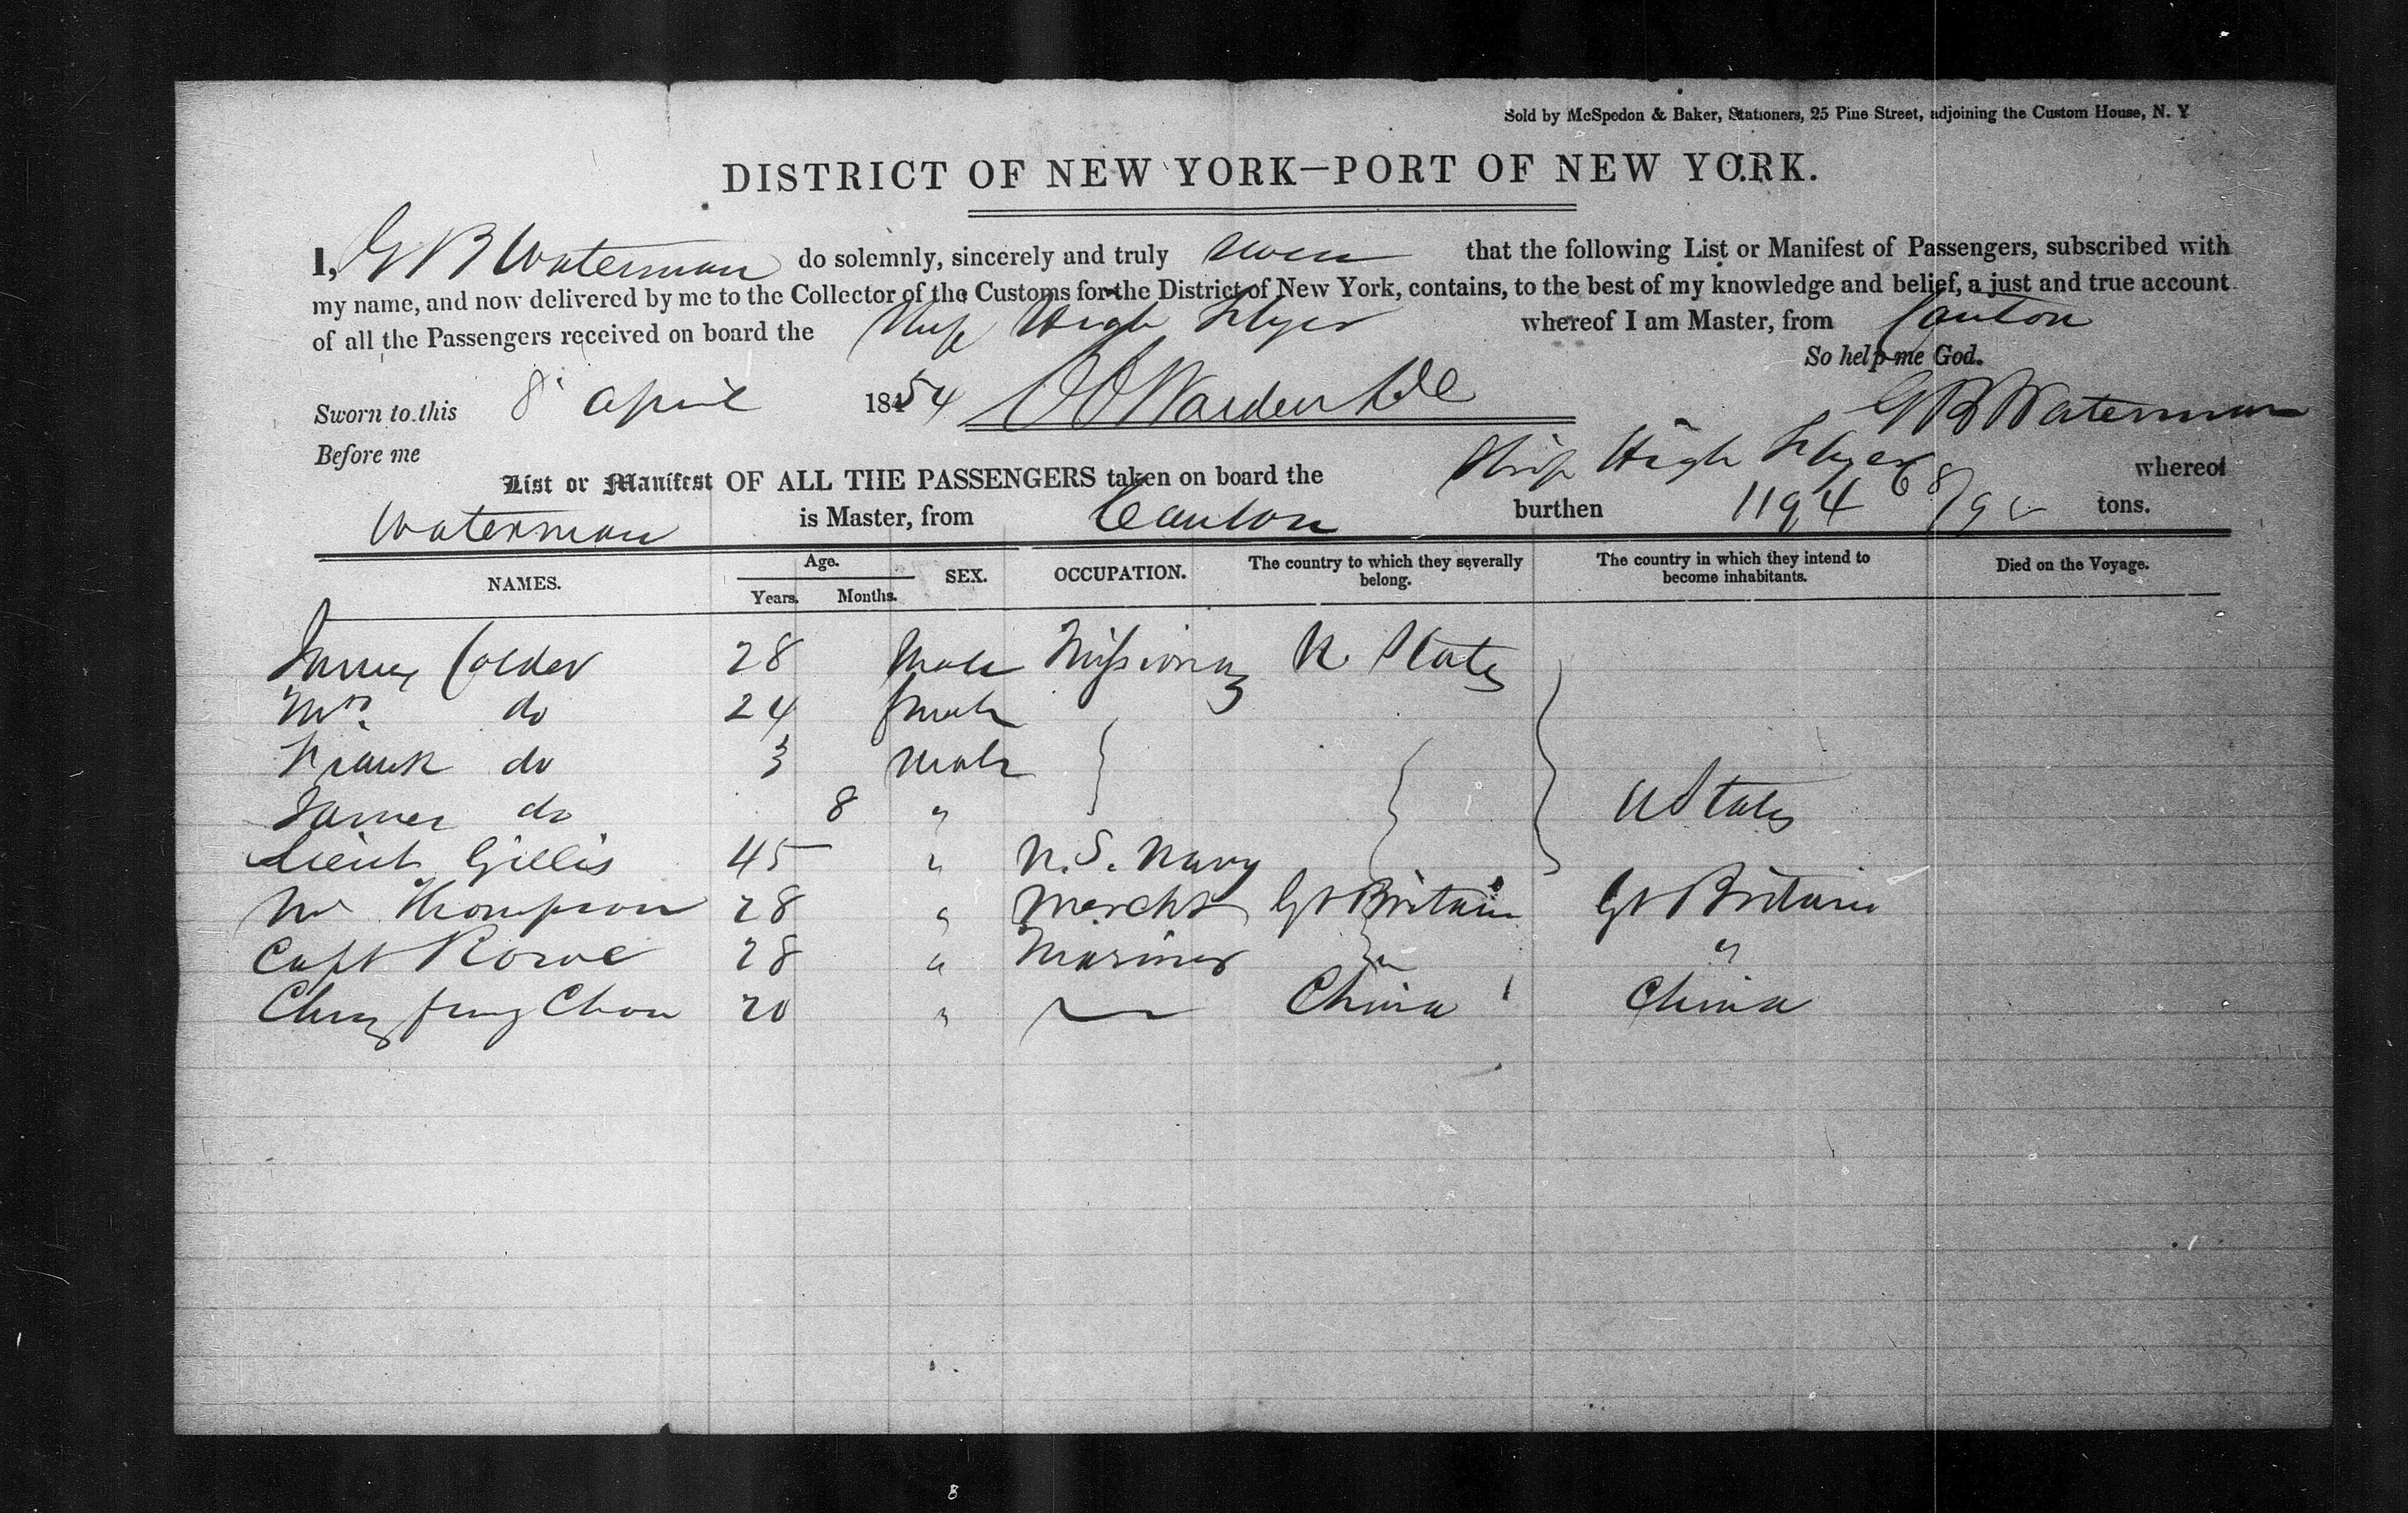 Sold by McSpedon & Baker, Stationers, 25 Pine Street, adjoining the Custom House, N. Y
DISTRICT OF NEW YORK—PORT OF NEW YORK.
I, G B Waterman do solemnly, sincerely and truly swear that the following List or Manifest of Passengers, subscribed with
my name, and now delivered by me to the Collector of the Customs for the District of New York, contains, to the best of my knowledge and belief, a just and true account
of all the Passengers received on board the Ship High Flyer whereof I am Master, from Canton
So help me God.
Sworn to this 8 April 1854 G B Waterman
Before me
List or Manifest OF ALL THE PASSENGERS taken on board the Ship High Flyer whereof
Waterman is Master, from Canton burthen 1194 tons.
NAMES. Age. Years. Months. SEX. OCCUPATION. The country to which they severally belong. The country in which they intend to become inhabitants. Died on the Voyage.
James Colder 28 Male Missionary U. States
Mrs. do 24 female
Frank do 3 Male
James do 8 " U States
Lieut. Gillis 45 " U.S. Navy
Mr Thompson 28 " Mercht Gt Britain Gt Britain
Capt Rowe 28 " Mariner " "
Chung fung Chou 20 " — China China
8